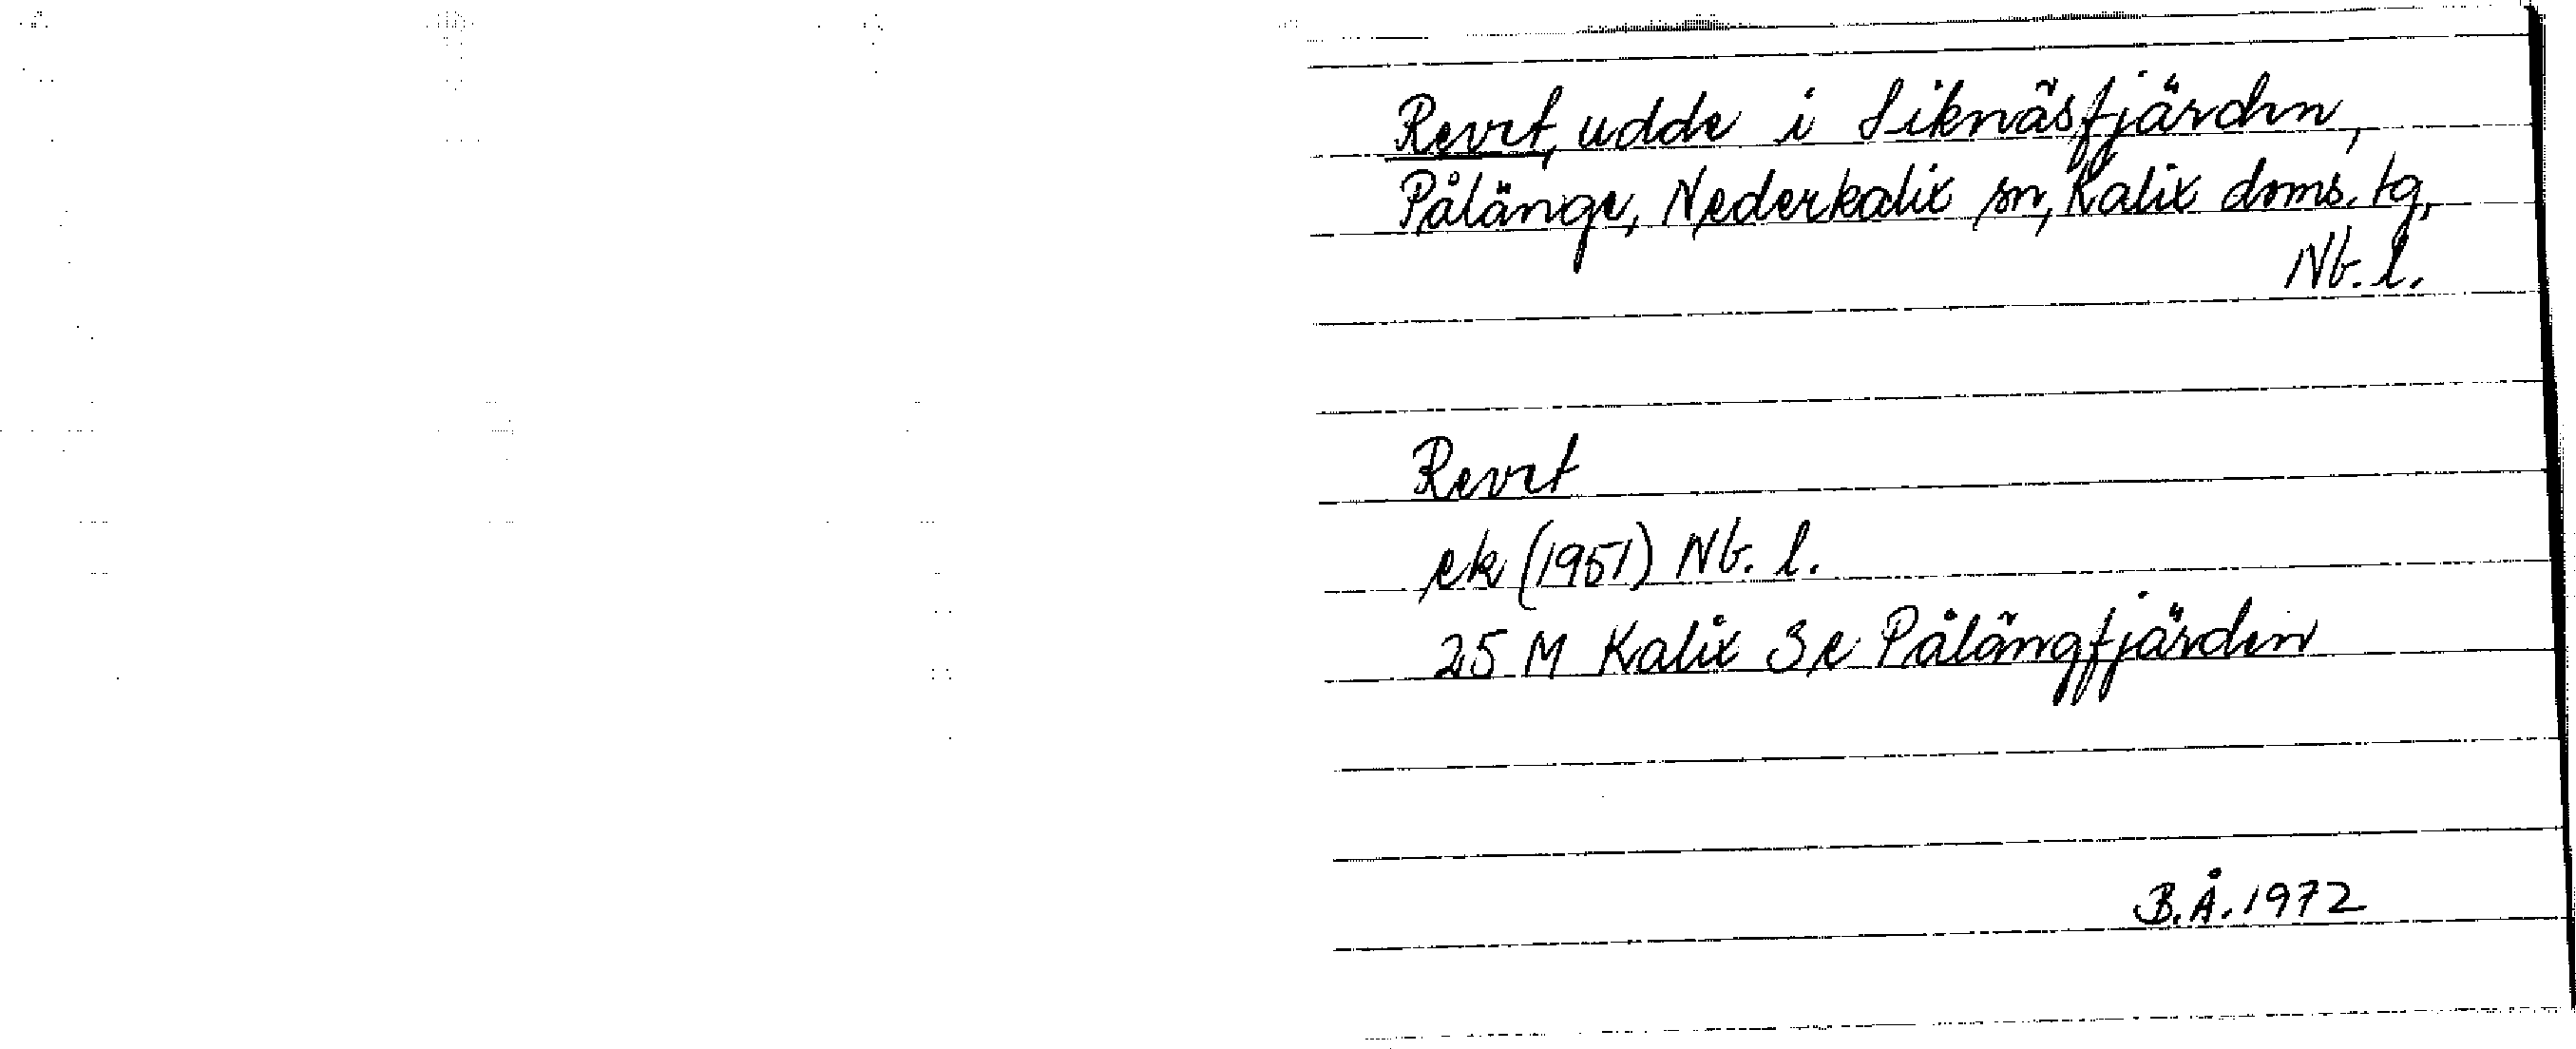 Revet, udde i Siknäsfjärden,
Pålänge, Nederkalix sn, Kalix doms. tg,
Nb. l.
Revet
ek (1951) Nb. l.
25 M Kalix 3e Pålängfjärden
B.Å. 1972